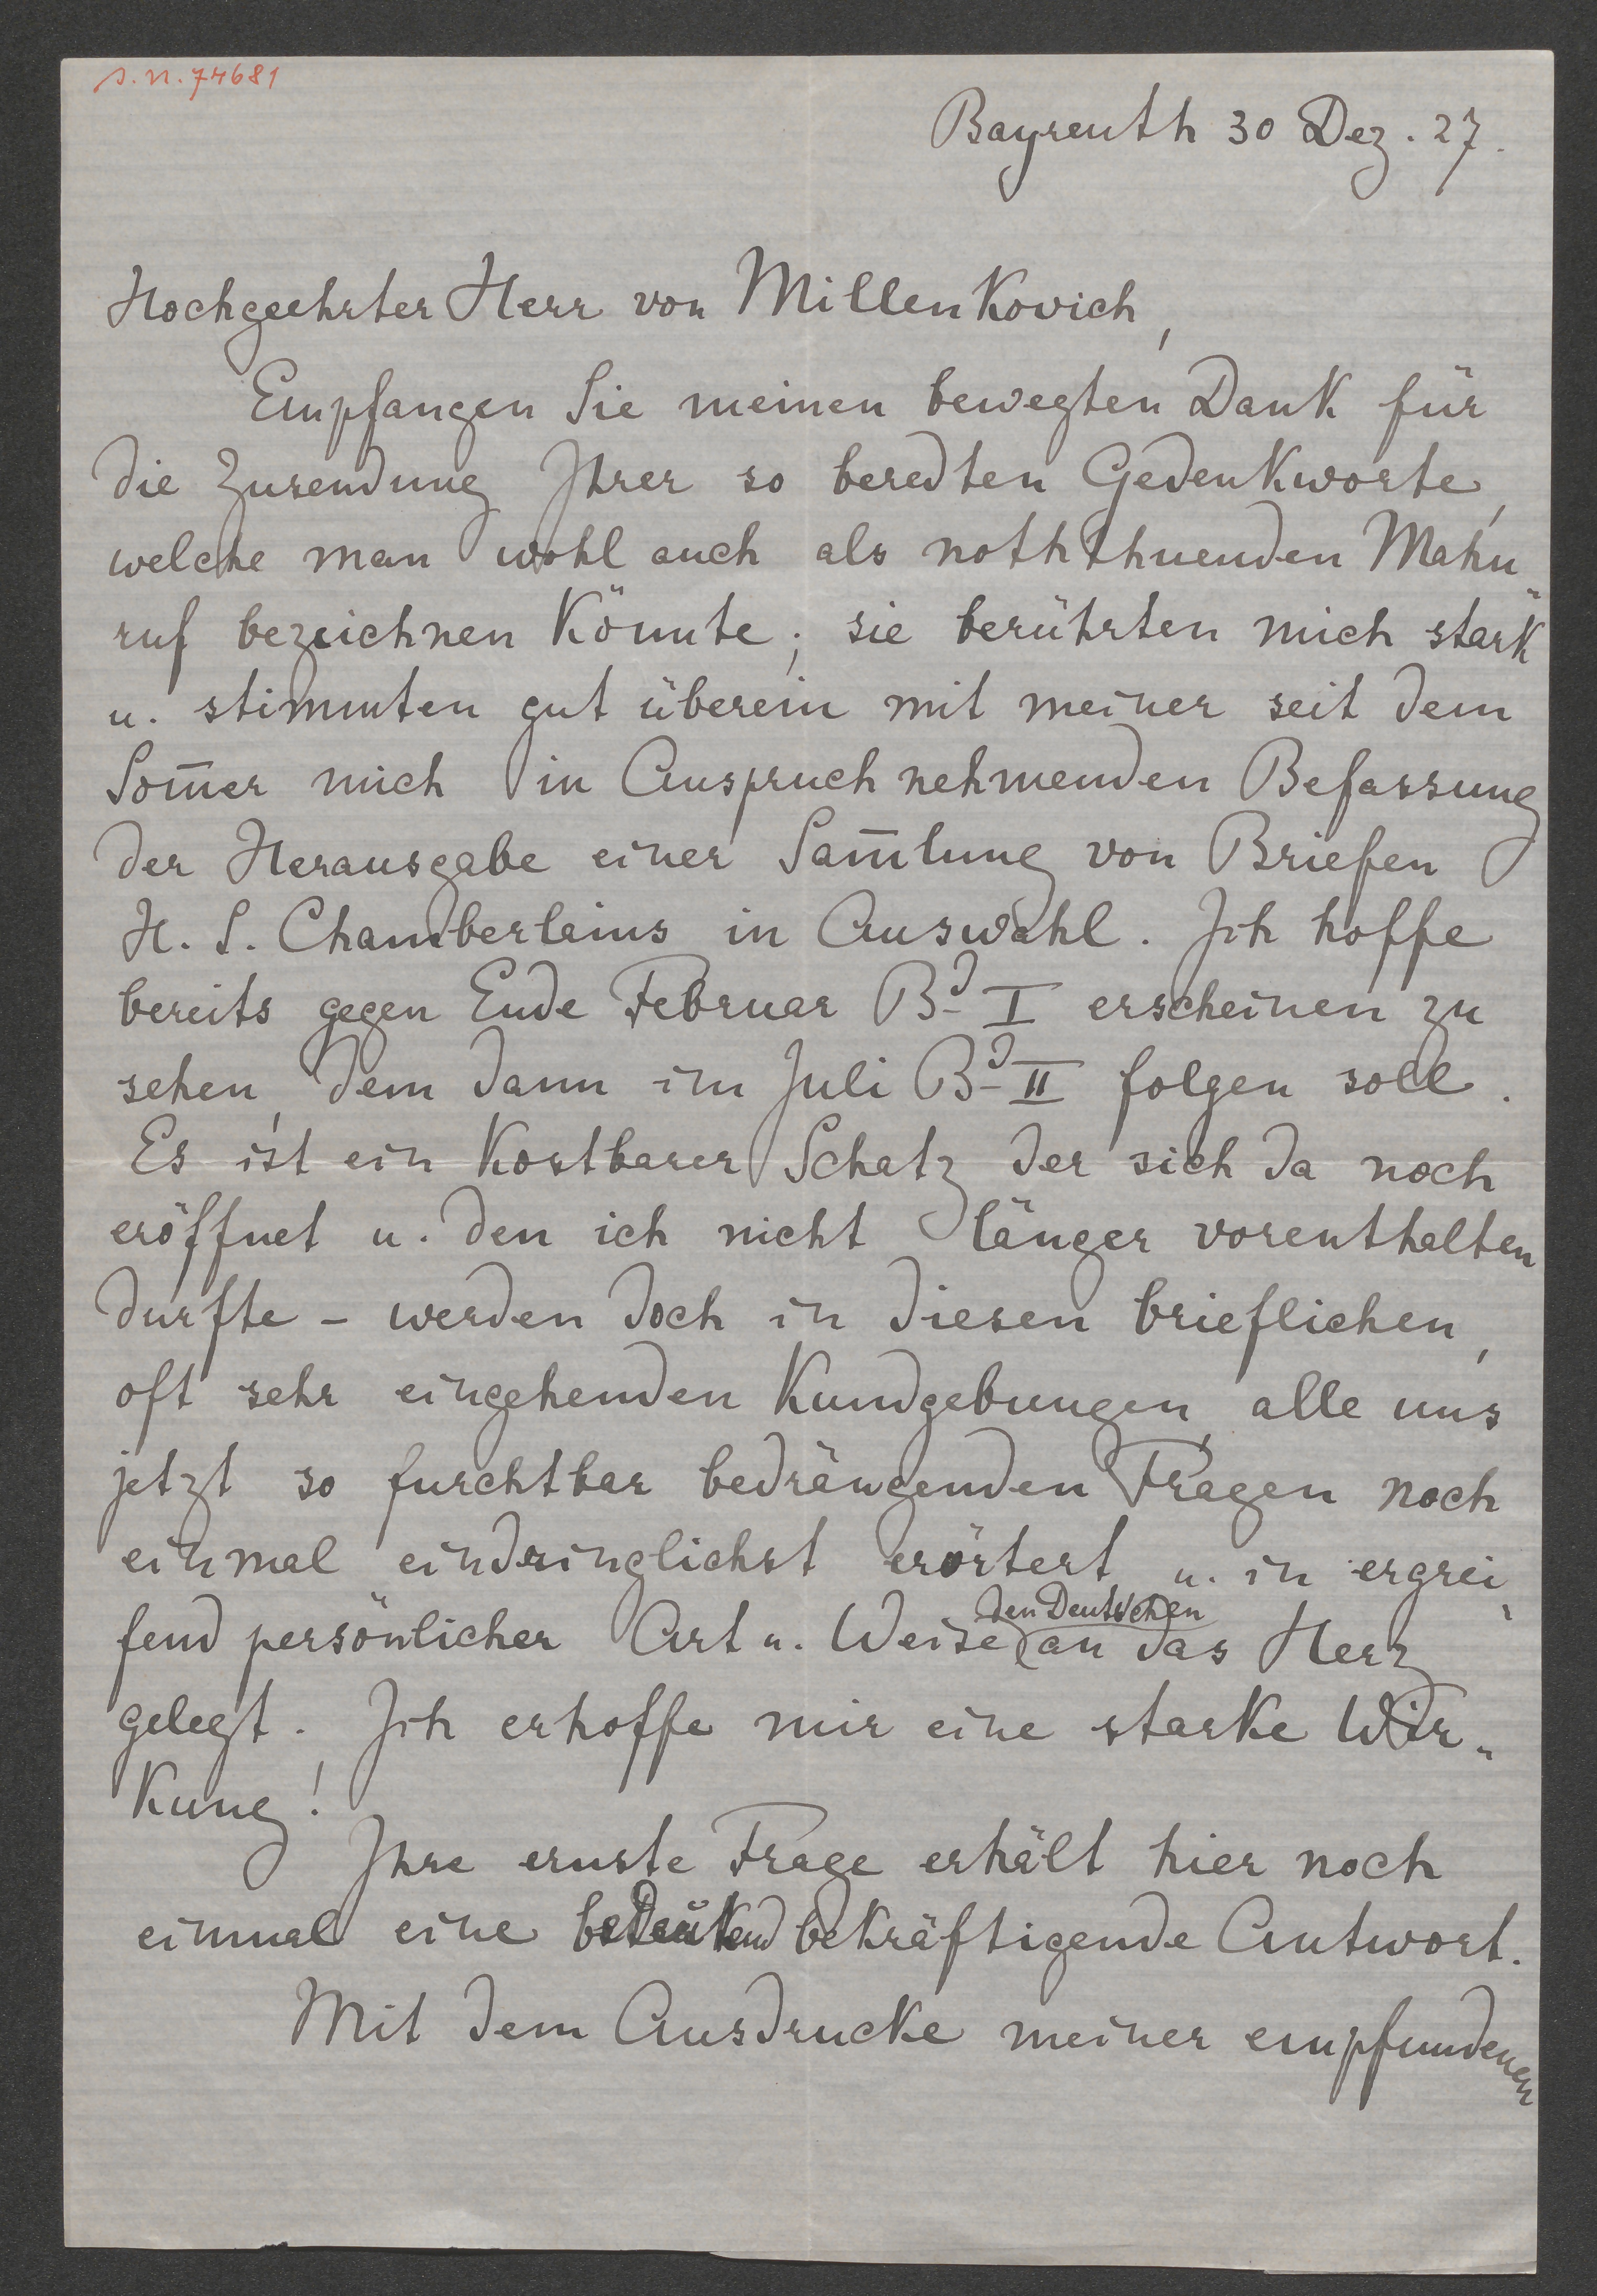 s. n. 74681
Bayreuth 30 Dez. 27.
Hochgeehrter Herr von Millenkovich,
Empfangen Sie meinen bewegten Dank für
die Zusendung Ihrer so beredten Gedenkworte,
welche man wohl auch als noththuenden Mahn-
ruf bezeichnen könnte; sie berührten mich stark
u. stimmten gut überein mit meiner seit dem
Som̅er mich in Anspruch nehmenden Befassung
der Herausgabe einer Sam̅lung von Briefen
H. S. Chamberlains in Auswahl. Ich hoffe
bereits gegen Ende Februar Bd I erscheinen zu
sehen, dem dann im Juli Bd II folgen soll.
Es ist ein kostbarer Schatz der sich da noch
eröffnet u. den ich nicht länger vorenthalten
durfte – werden doch in diesen brieflichen,
oft sehr eingehenden Kundgebungen, alle uns
jetzt so furchtbar bedrängenden Fragen noch
einmal eindringlichst erörtert u. in ergrei-
fend persönlicher Art u. Weise den Deutschen an das Herz
gelegt. Ich erhoffe mir eine starke Wir-
kung!
Ihre ernste Frage erhält hier noch
einmal eine bedeutend bekräftigende Antwort.
Mit dem Ausdrucke meiner empfundenen